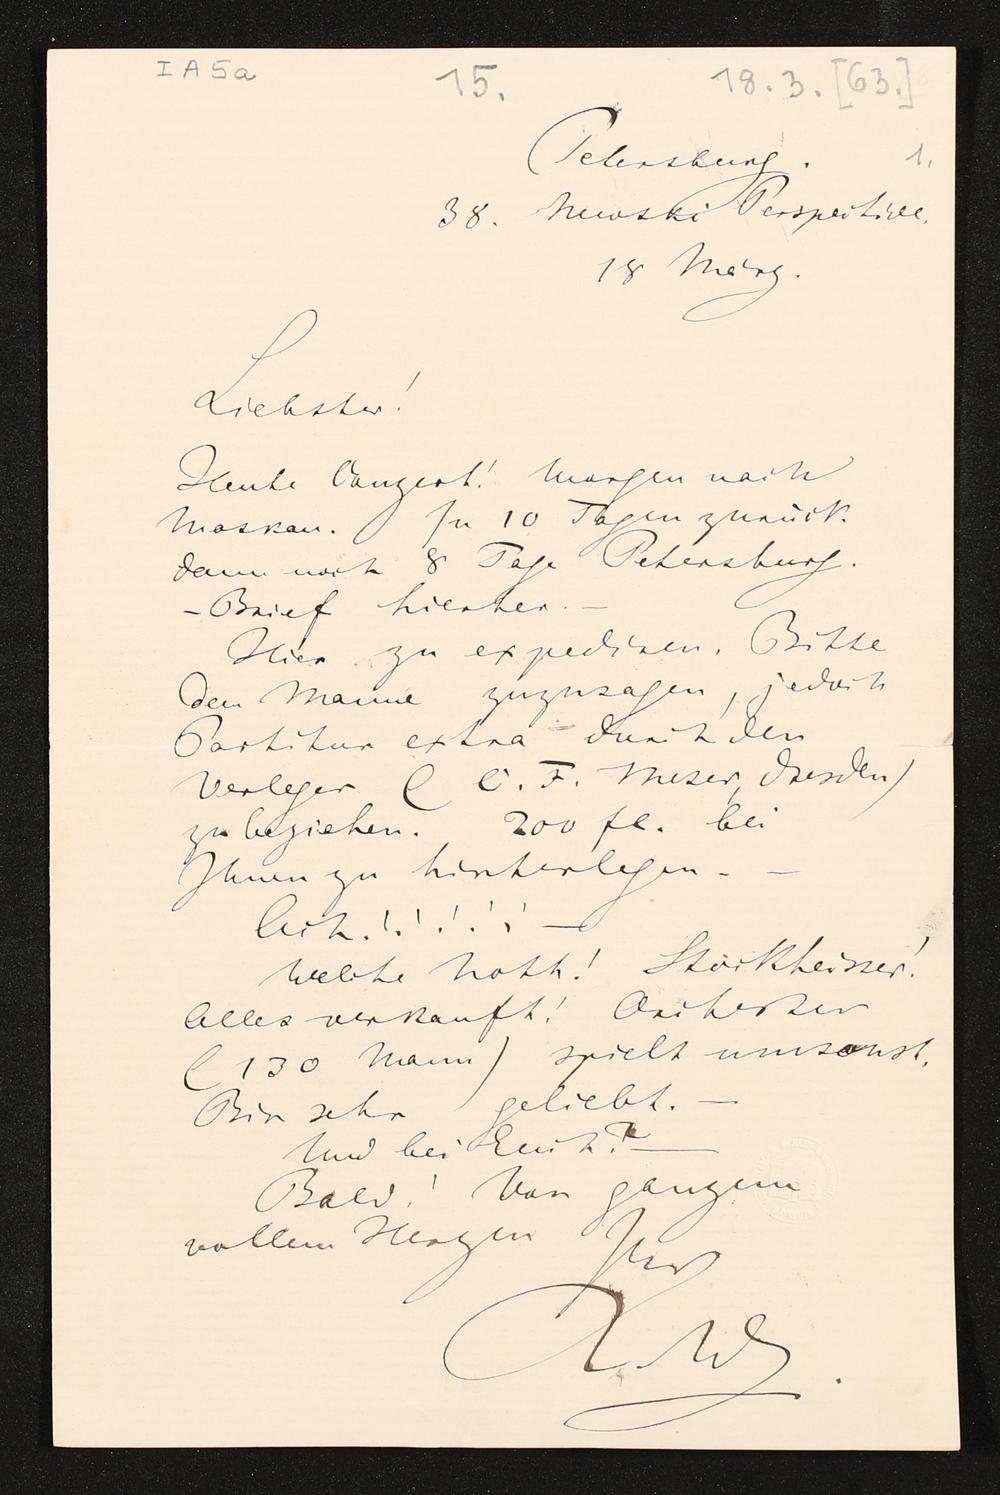 I A 5a 15. 18. 3. [63.]
Petersburg. 1.
38. Newski Perspective.
18 März.
Liebster!
Heute Conzert! Morgen nach
Moskau. In 10 Tagen zurück.
dann noch 8 Tage Petersburg.
- Brief hierher. -
Hier zu expediren. Bitte
dem Manne zuzusagen, jedoch
Partitur extra durch den
Verleger (C. F. Meser, Dresden)
zu beziehen. 200 fl. bei
Ihnen zu hinterlegen. -
Ach!!!!! -
Welche Noth! Stockheiser!
Alles verkauft! Orchester
(130 Mann) spielt umsonst.
Bin sehr geliebt. -
Und bei Euch? -
Bald! Von ganzem
vollem Herzen Ihr
R. W.